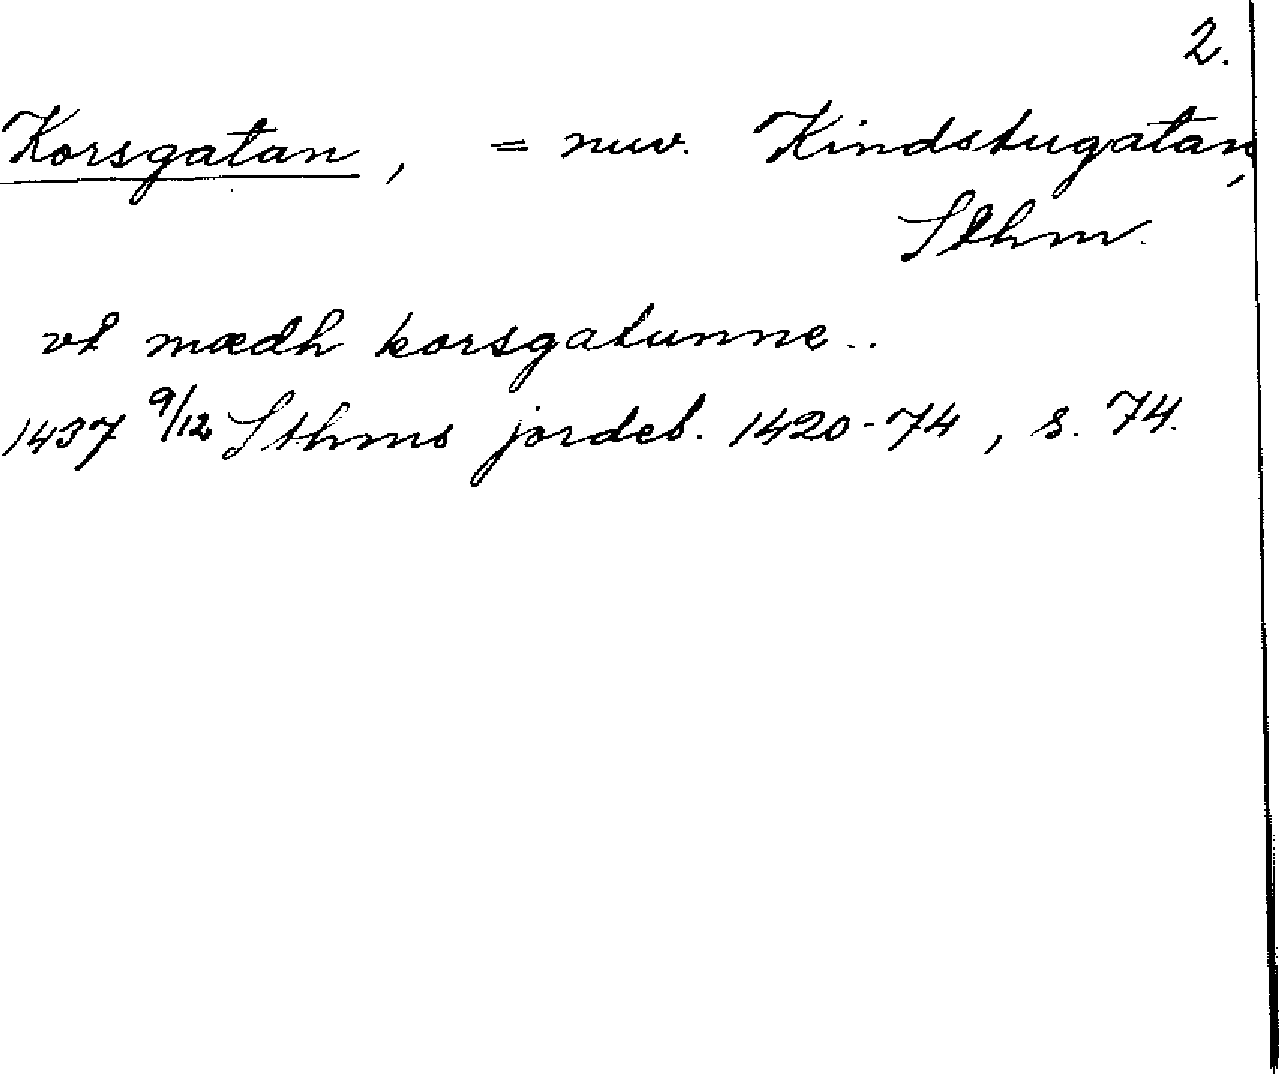 2.
Korsgatan, = nuv. Kindstugatan,
Sthm.
vt mædh korsgatunne..
1437 9/12 Sthms jordeb. 1420-74, s. 74.